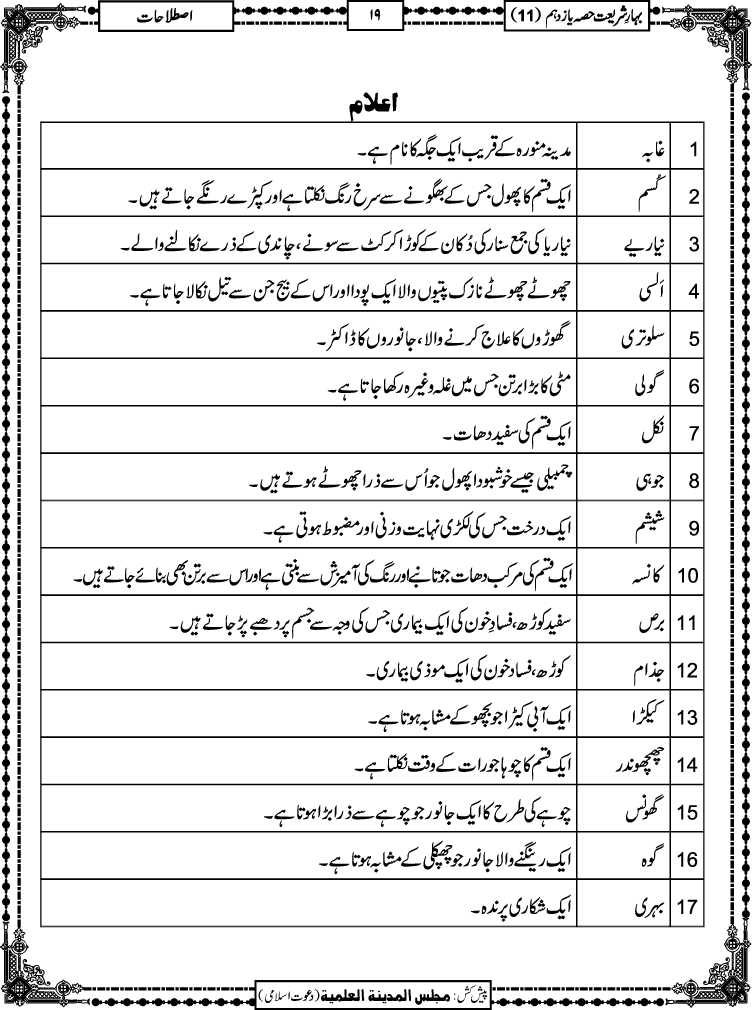 بہارِشریعت حصہ یازدہم (11)
۱۹
اصطلاحات
اعلام
1 غابہ مدینہ منورہ کے قریب ایک جگہ کا نام ہے۔
2 کُسم ایک قسم کا پھول جس کے بھگونے سے سرخ رنگ نکلتا ہے اور کپڑے رنگے جاتے ہیں۔
3 نیاریے نیاریا کی جمع سنار کی دُکان کے کوڑا کرکٹ سے سونے، چاندی کے ذرے نکالنے والے۔
4 اَلسی چھوٹے چھوٹے نازک پتیوں والا ایک پودا اور اس کے بیج جن سے تیل نکالا جاتا ہے۔
5 سلوتری گھوڑوں کا علاج کرنے والا، جانوروں کا ڈاکٹر۔
6 گولی مٹی کا بڑا برتن جس میں غلہ وغیرہ رکھا جاتا ہے۔
7 نکل ایک قسم کی سفید دھات۔
8 جوہی چمبیلی جیسے خوشبودا پھول جو اُس سے ذرا چھوٹے ہوتے ہیں۔
9 شیشم ایک درخت جس کی لکڑی نہایت وزنی اور مضبوط ہوتی ہے۔
10 کانسہ ایک قسم کی مرکب دھات جو تانبے اور رنگ کی آمیزش سے بنتی ہے اور اس سے برتن بھی بنائے جاتے ہیں۔
11 برص سفید کوڑھ، فسادِ خون کی ایک بیماری جس کی وجہ سے جسم پر دھبے پڑ جاتے ہیں۔
12 جذام کوڑھ، فساد خون کی ایک موذی بیماری۔
13 کیکڑا ایک آبی کیڑا جو بچھو کے مشابہ ہوتا ہے۔
14 چھچھوندر ایک قسم کا چوہا جو رات کے وقت نکلتا ہے۔
15 گھونس چوہے کی طرح کا ایک جانور جو چوہے سے ذرا بڑا ہوتا ہے۔
16 گوہ ایک رینگنے والا جانور جو چھپکلی کے مشابہ ہوتا ہے۔
17 بہری ایک شکاری پرندہ۔
پیش کش: مجلس المدینة العلمیة (دعوت اسلامی)